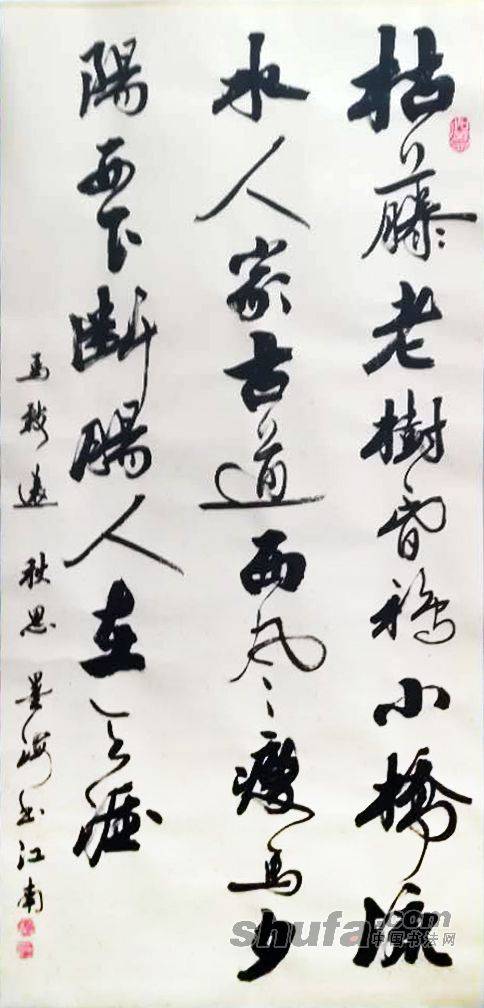 枯藤老樹昏鴉小橋流
水人家古道西风瘦馬夕
陽西下断腸人在天涯
馬致遠 秋思 墨海书江南
shufa.com
中国书法网